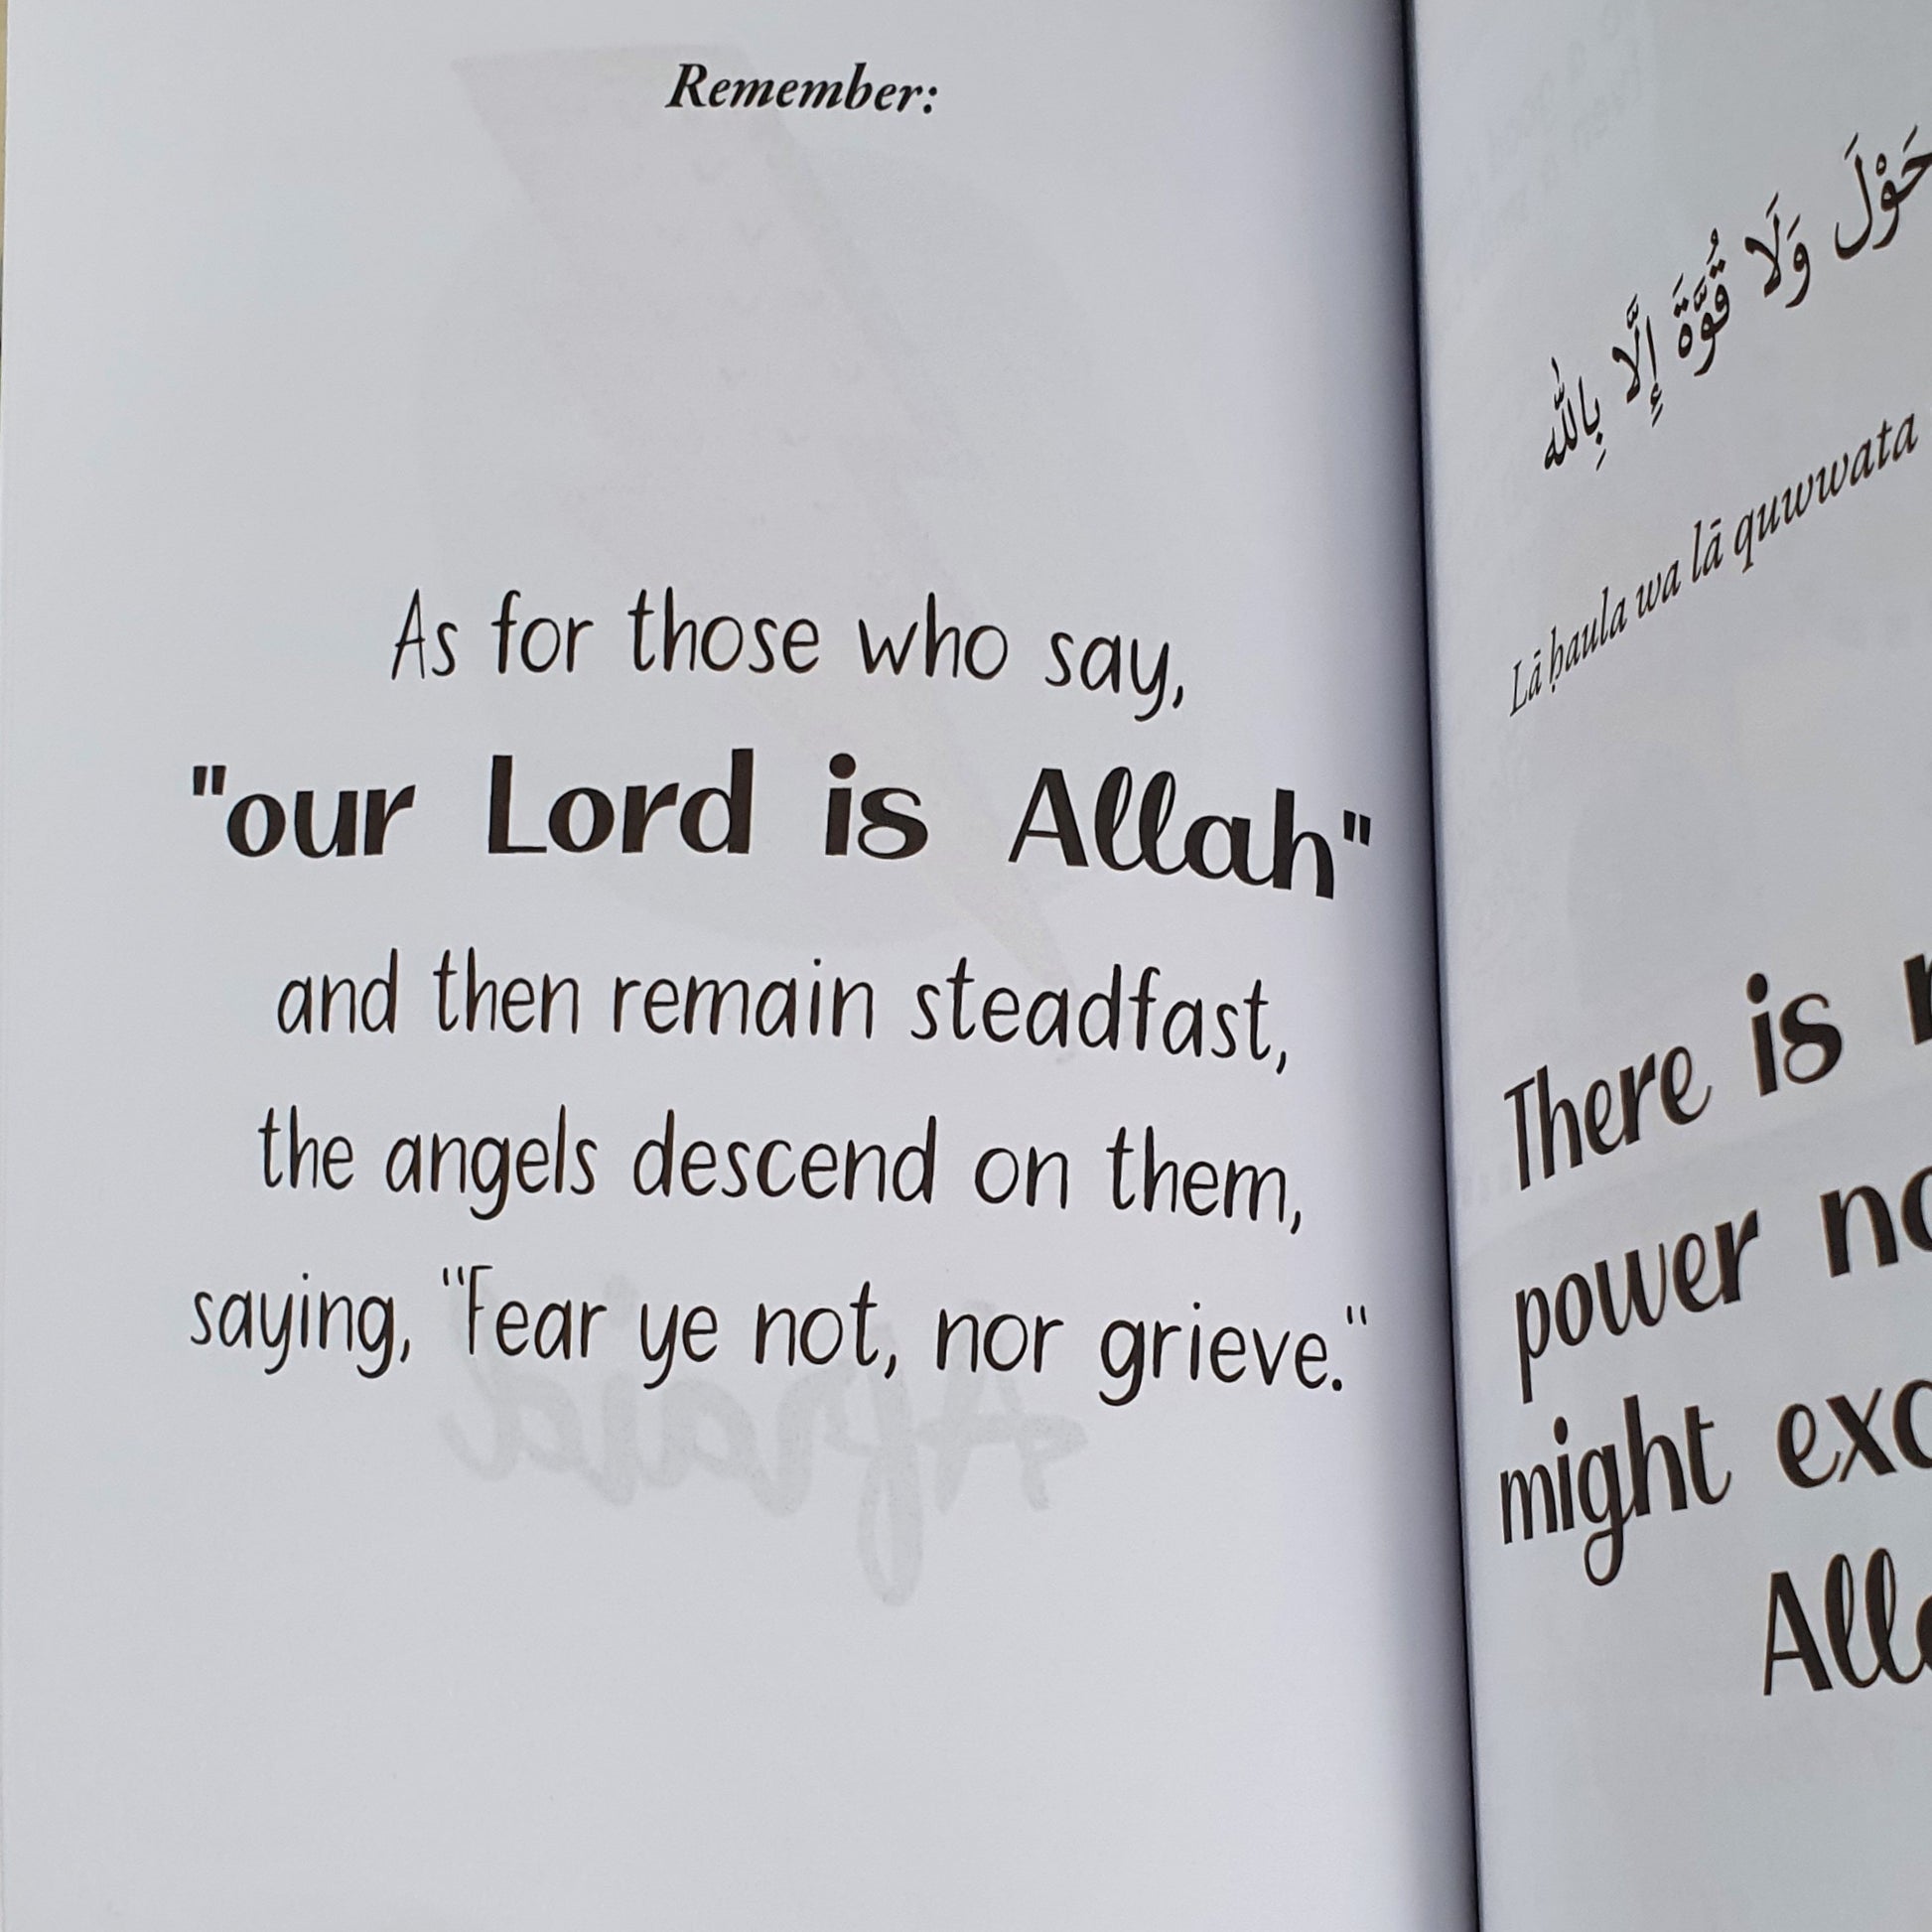 Remember:
As for those who say,
"our Lord is Allah"
and then remain steadfast,
the angels descend on them,
saying, "Fear ye not, nor grieve."
Afraid
حَوْلَ وَلَا قُوَّةَ إِلَّا بِاللّٰهِ
Lā ḥaula wa lā quwwata
There is
power
might